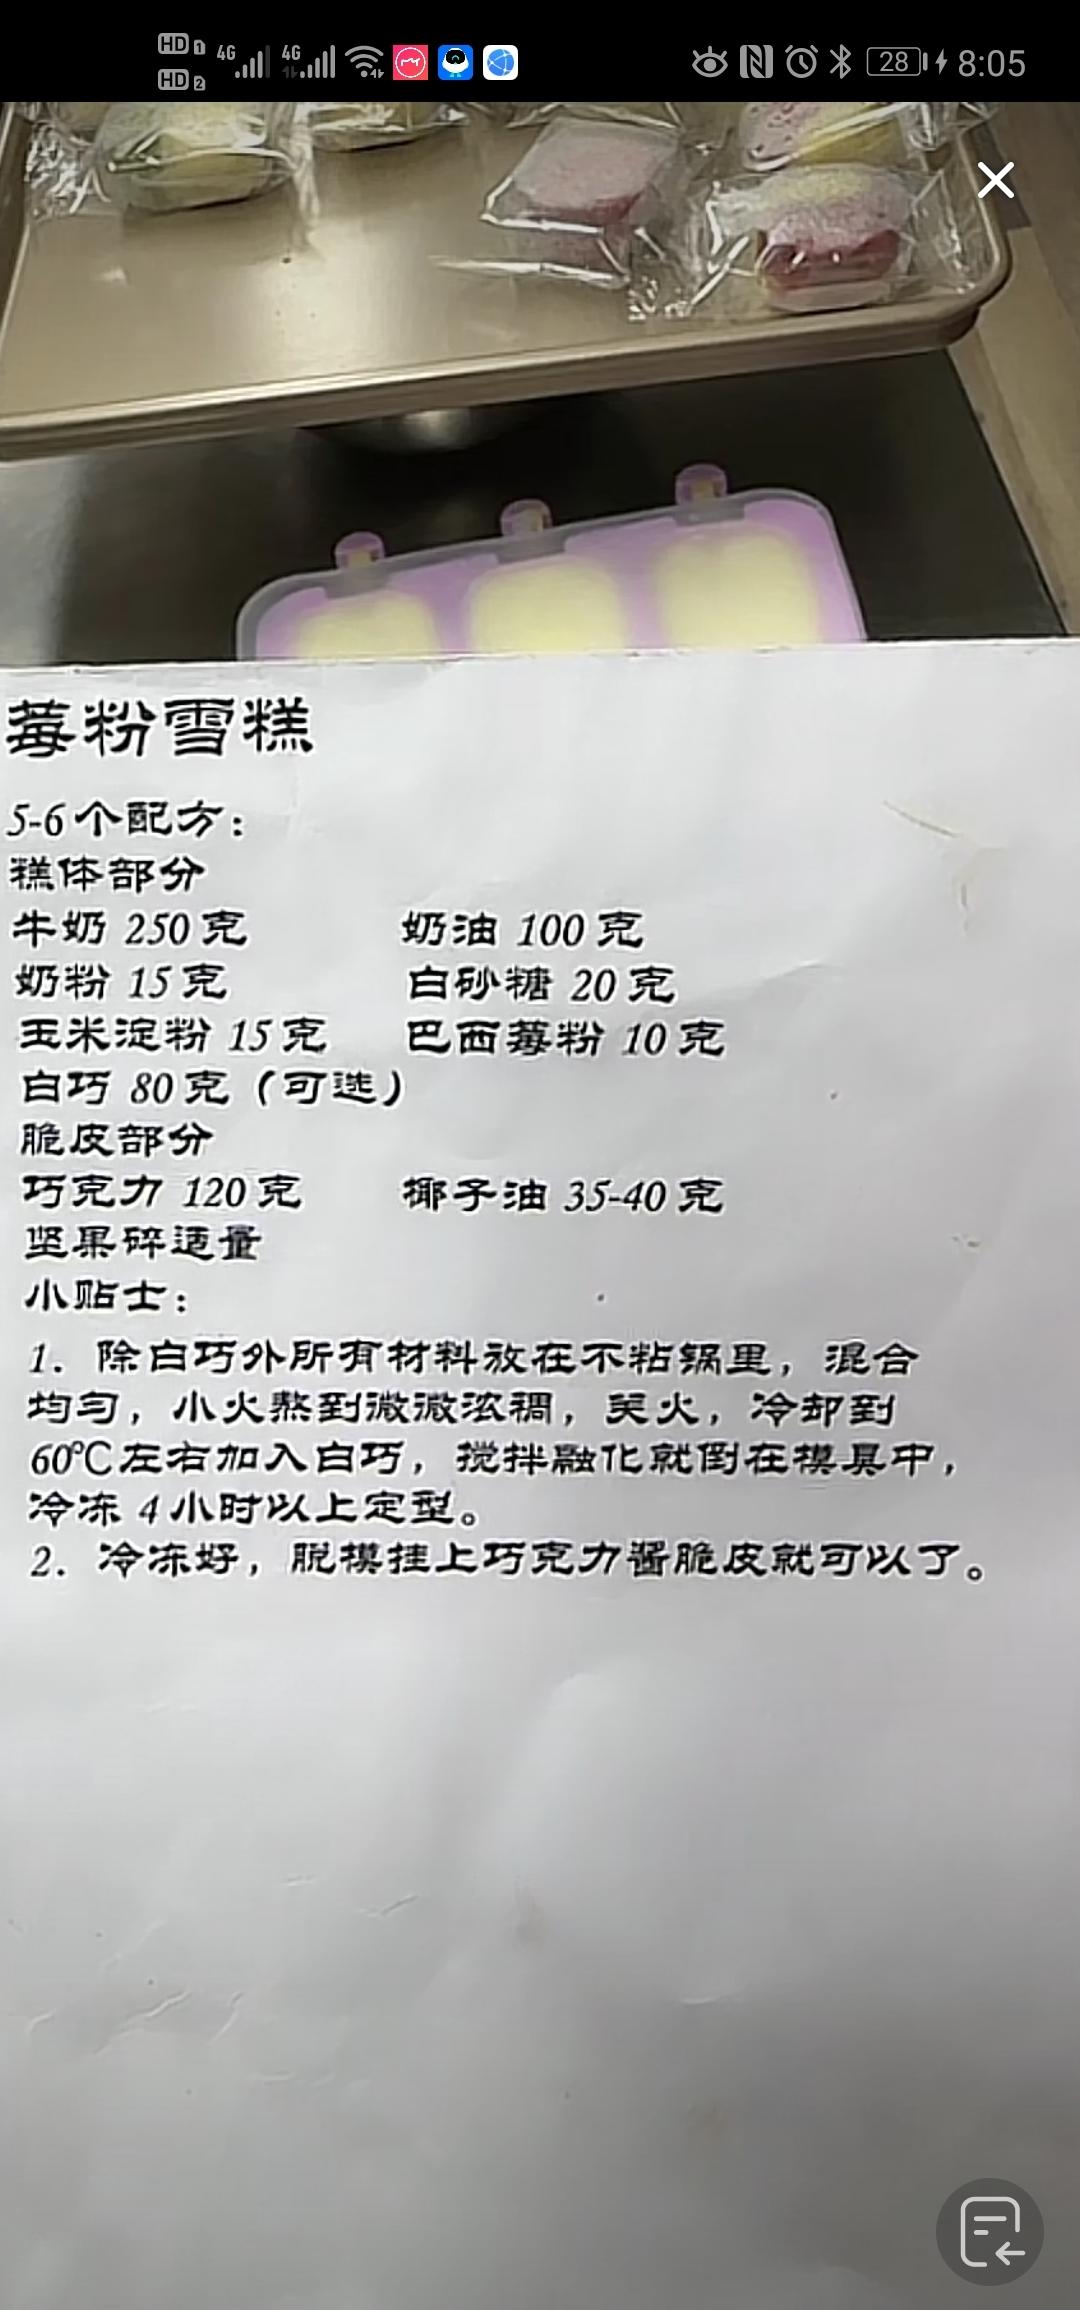 HD 1
HD 2
4G
4G
28
8:05
莓粉雪糕
5-6个配方：
糕体部分
牛奶 250克 奶油 100克
奶粉 15克 白砂糖 20克
玉米淀粉 15克 巴西莓粉 10克
白巧 80克（可选）
脆皮部分
巧克力 120克 椰子油 35-40克
坚果碎适量
小贴士：
1. 除白巧外所有材料放在不粘锅里，混合
均匀，小火熬到微微浓稠，关火，冷却到
60℃左右加入白巧，搅拌融化就倒在模具中，
冷冻 4小时以上定型。
2. 冷冻好，脱模挂上巧克力酱脆皮就可以了。